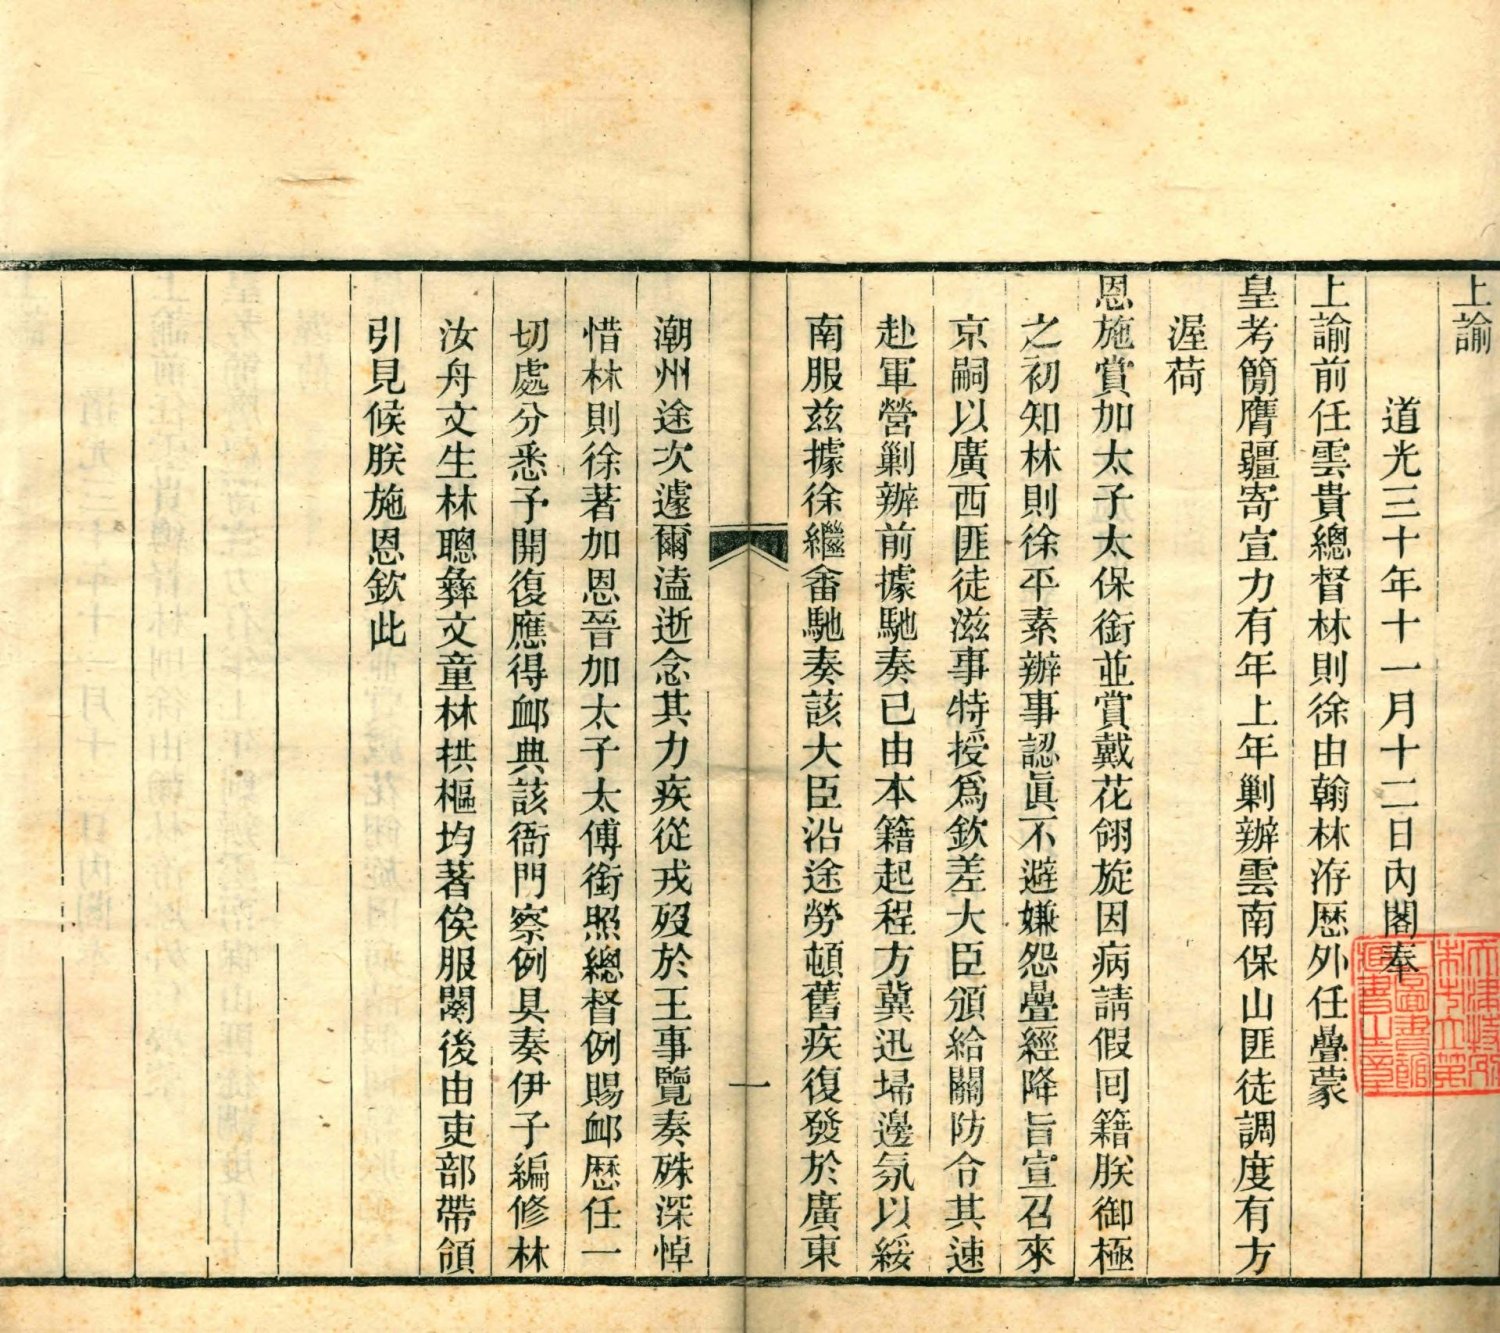 上諭
道光三十年十一月十二日內閣奉
上諭前任雲貴總督林則徐由翰林洊歷外任疊蒙
皇考簡膺疆寄宣力有年上年剿辦雲南保山匪徒調度有方
渥荷
恩施賞加太子太保銜並賞戴花翎旋因病請假回籍朕御極
之初知林則徐平素辦事認眞不避嫌怨疊經降旨宣召來
京嗣以廣西匪徒滋事特授爲欽差大臣頒給關防令其速
赴軍營剿辦前據馳奏已由本籍起程方冀迅埽邊氛以綏
南服兹據徐繼畬馳奏該大臣沿途勞頓舊疾復發於廣東
一
潮州途次遽爾溘逝念其力疾從戎歿於王事覽奏殊深悼
惜林則徐著加恩晉加太子太傅銜照總督例賜卹歷任一
切處分悉予開復應得卹典該衙門察例具奏伊子編修林
汝舟文生林聰彝文童林拱樞均著俟服闋後由吏部帶領
引見候朕施恩欽此
天津特別
市市立第
二圖書館
藏書之章